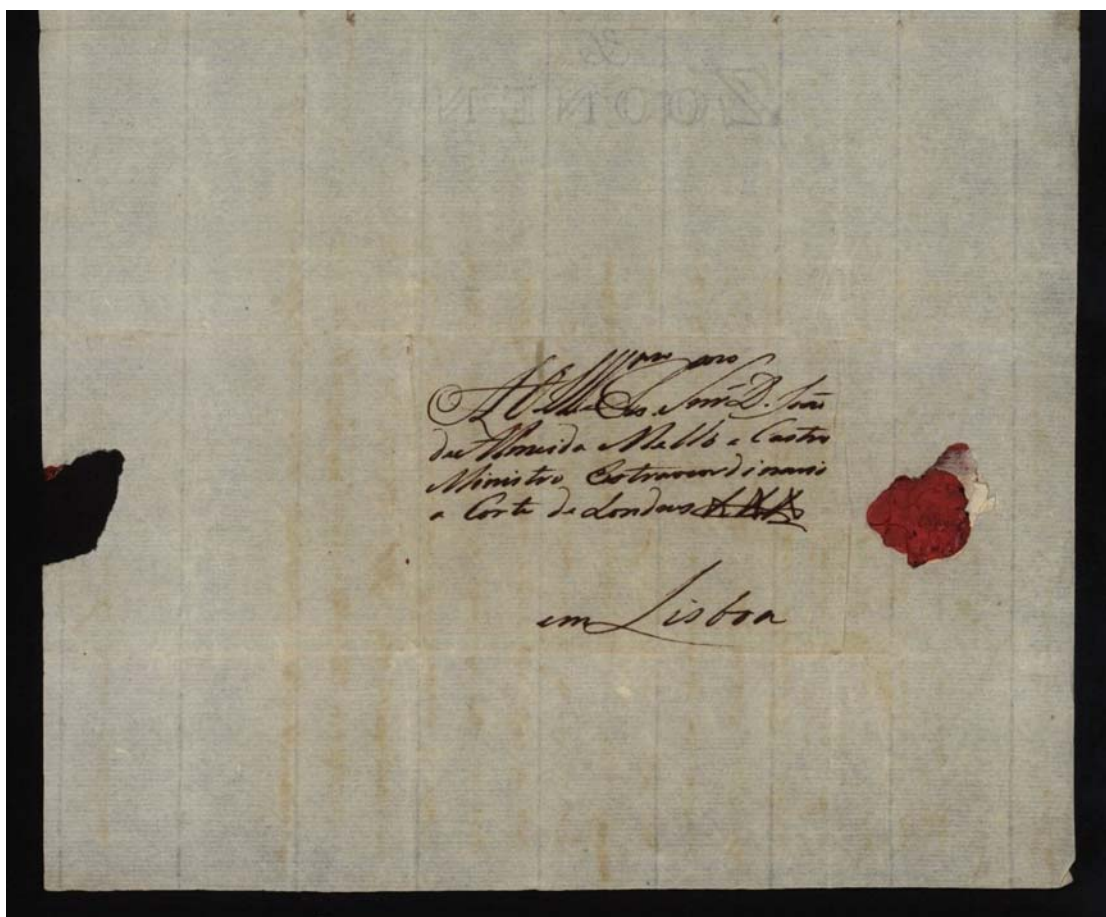 & 
ZOONEN
Ill.mo Ex.mo Snr. D. João
de Almeida Mello e Castro
Ministro Extraordinario
a Corte de Londres
em Lisboa